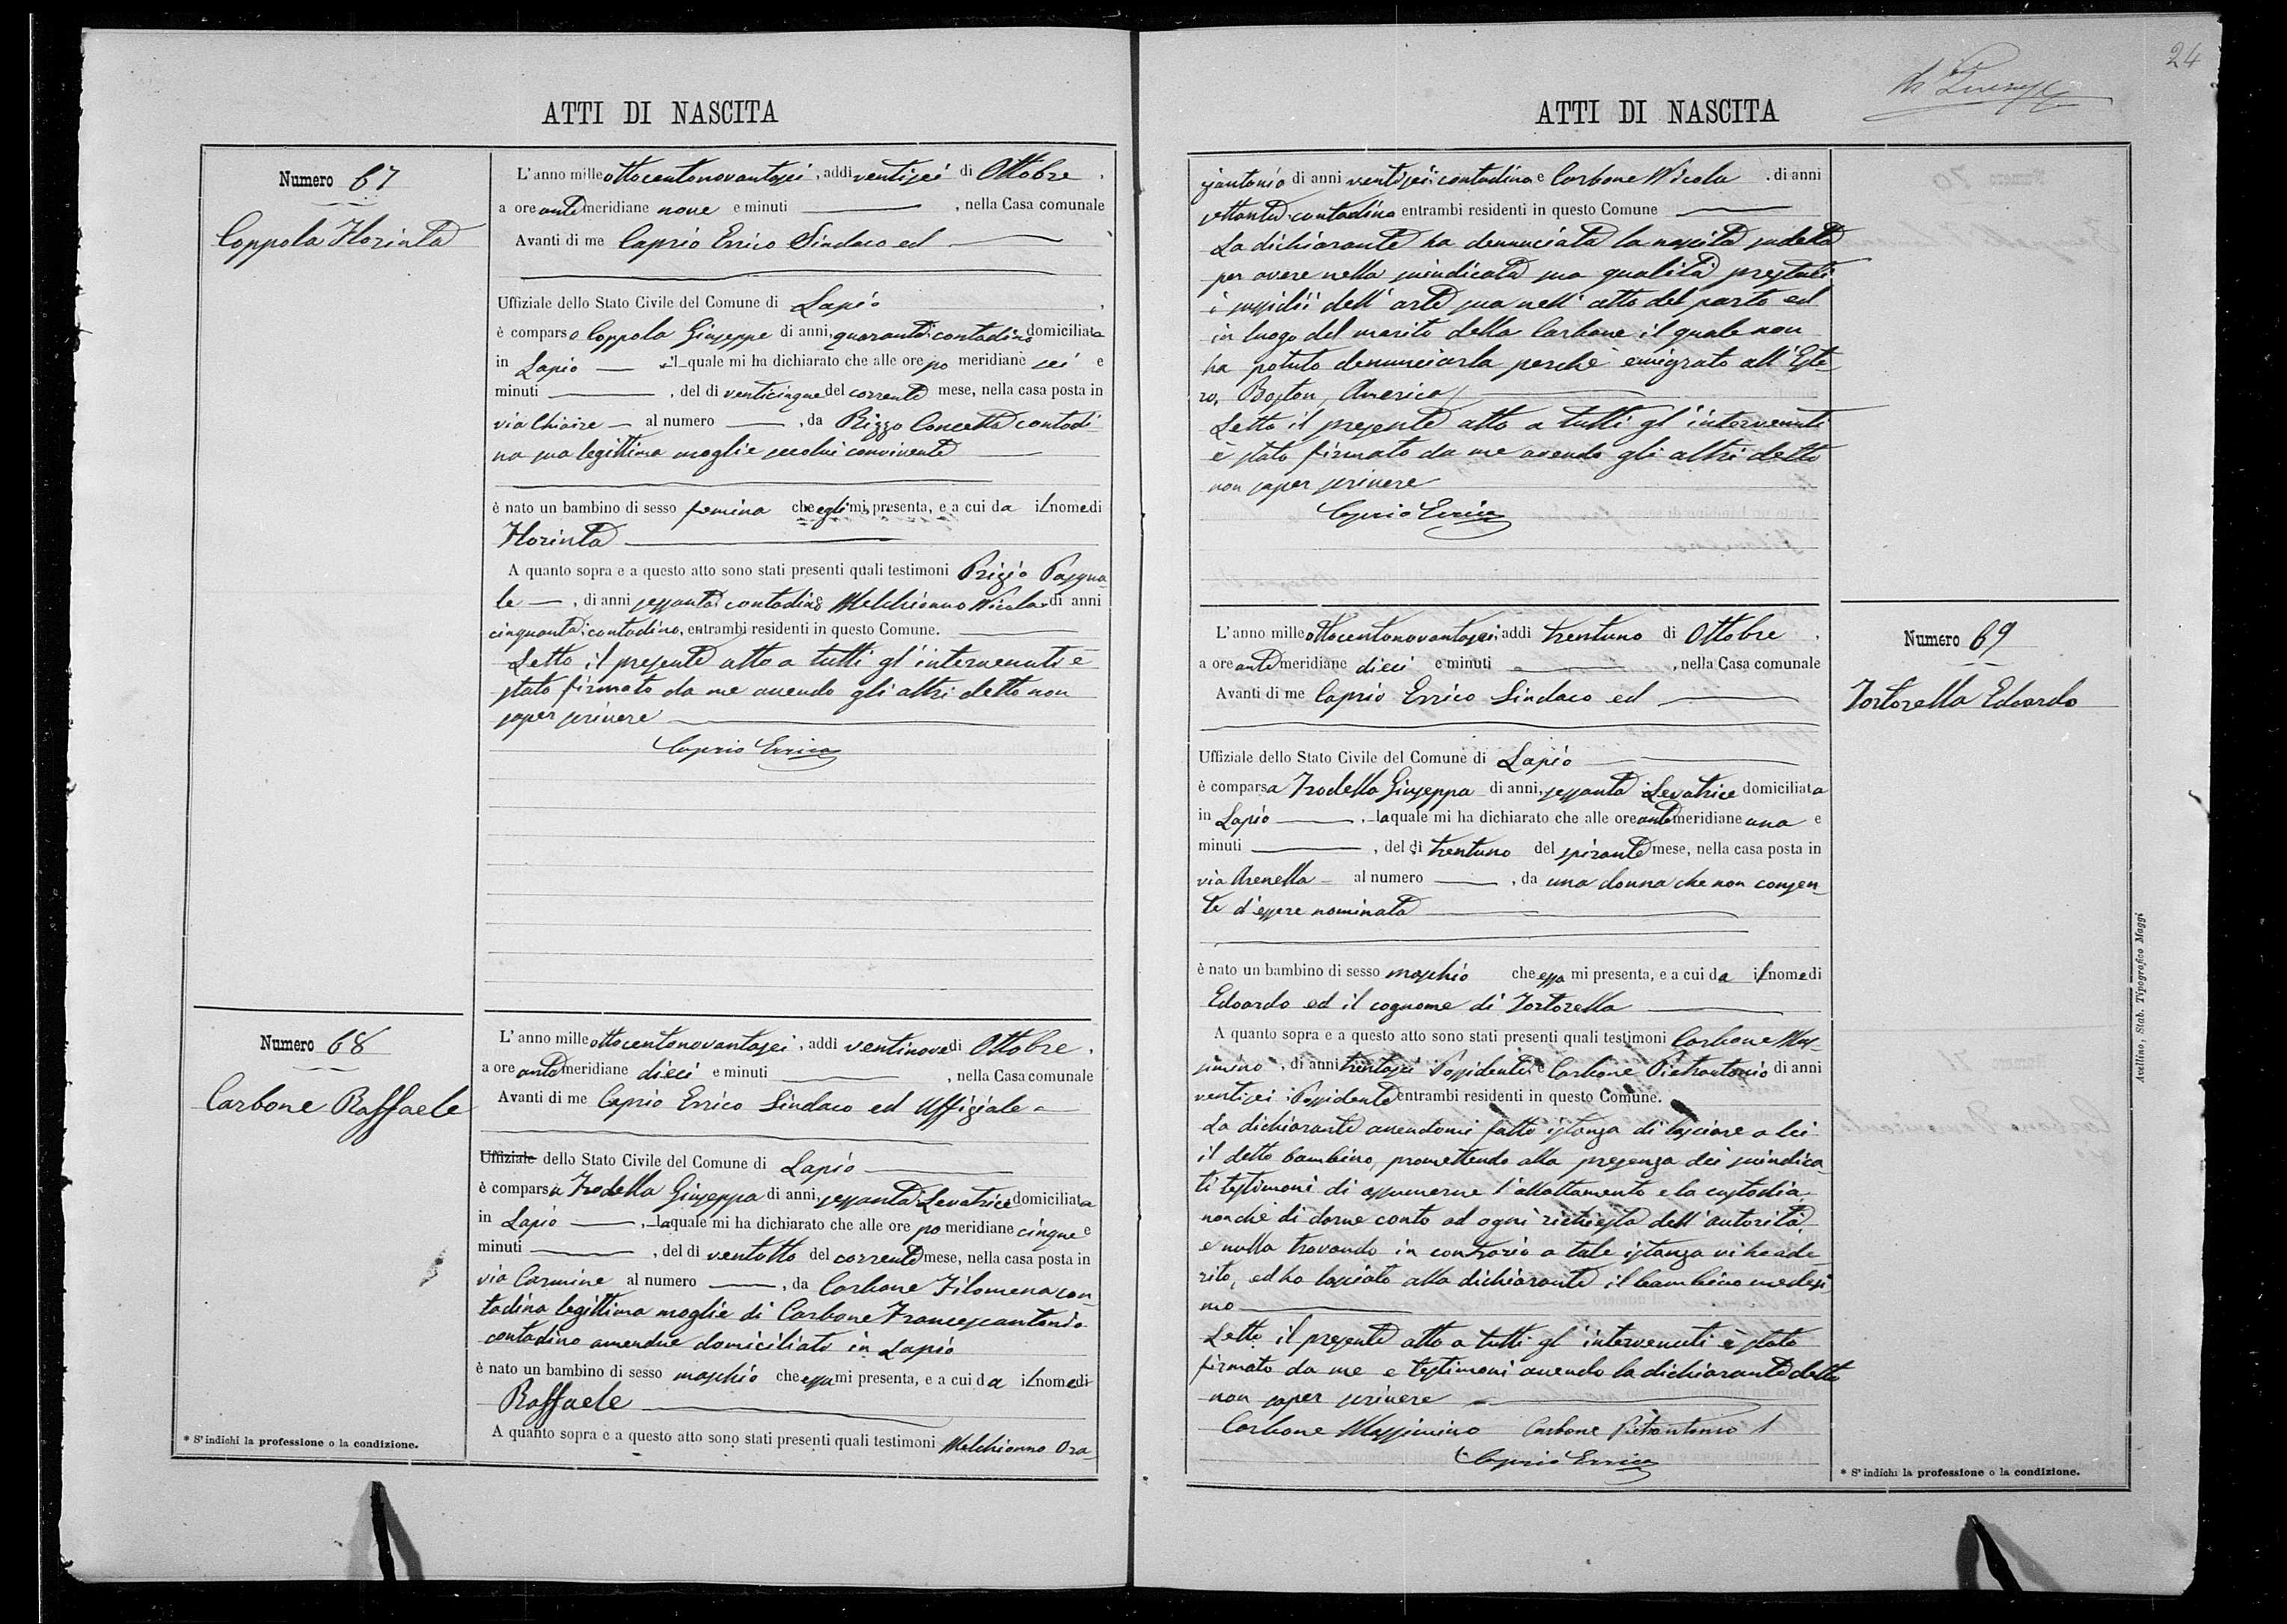 ATTI DI NASCITA
Numero 67
Coppola Florinta
L'anno mille ottocentonovantasei, addi ventisei di Ottobre,
a ore antemeridiane nove e minuti — , nella Casa comunale
Avanti di me Caprio Errico Sindaco ed —
Uffiziale dello Stato Civile del Comune di Lapio,
è comparso Coppola Giuseppe di anni, quaranta contadino domiciliato
in Lapio — il quale mi ha dichiarato che alle ore pomeridiane sei e
minuti — , del dì venticinque del corrente mese, nella casa posta in
via Chiaire — al numero — , da Rizzo Concetta contadi-
na sua legittima moglie secolui convivente —
è nato un bambino di sesso femina che egli mi presenta, e a cui da il nome di
Florinta —
A quanto sopra e a questo atto sono stati presenti quali testimoni Prizio Pasqua-
le — , di anni sessanta contadino e Melchionno Nicola di anni
cinquanta contadino, entrambi residenti in questo Comune. —
Letto il presente atto a tutti gl'intervenuti è
stato firmato da me avendo gli altri detto non
saper scrivere —
Caprio Errico
Numero 68
Carbone Raffaele
L'anno mille ottocentonovantasei, addi ventinove di Ottobre,
a ore antemeridiane dieci e minuti — , nella Casa comunale
Avanti di me Caprio Errico Sindaco ed Uffiziale —
Uffiziale dello Stato Civile del Comune di Lapio —
è comparsa Trodella Giuseppa di anni, sessanta Levatrice domiciliata
in Lapio — , la quale mi ha dichiarato che alle ore pomeridiane cinque e
minuti — , del dì ventotto del corrente mese, nella casa posta in
via Carmine al numero — , da Carbone Filomena con-
tadina legittima moglie di Carbone Francescantonio
contadino amendue domiciliati in Lapio
è nato un bambino di sesso maschio che essa mi presenta, e a cui da il nome di
Raffaele —
A quanto sopra e a questo atto sono stati presenti quali testimoni Melchionno Ora-
* S'indichi la professione o la condizione.
24
ATTI DI NASCITA
ziantonio di anni ventisei contadino e Carbone Nicola . di anni
settanta contadino entrambi residenti in questo Comune —
La dichiarante ha denunciata la nascita sudetta
per avere nella suindicata sua qualità prestati
i sussidii dell'arte sua nell'atto del parto ed
in luogo del marito della Carbone il quale non
ha potuto denunciarla perchè emigrato all'Este-
ro, Boston, America —
Letto il presente atto a tutti gl'intervenuti
è stato firmato da me avendo gli altri detto
non saper scrivere
Caprio Errico
Numero 69
Tortorella Edoardo
L'anno mille ottocentonovantasei addi trentuno di Ottobre,
a ore antemeridiane dieci e minuti — , nella Casa comunale
Avanti di me Caprio Errico Sindaco ed —
Uffiziale dello Stato Civile del Comune di Lapio —
è comparsa Trodella Giuseppa di anni, sessanta Levatrice domiciliata
in Lapio — , la quale mi ha dichiarato che alle ore antemeridiane una e
minuti — , del dì trentuno del spirante mese, nella casa posta in
via Arenella — al numero — , da una donna che non consen-
te d'essere nominata —
è nato un bambino di sesso maschio che essa mi presenta, e a cui da il nome di
Edoardo ed il cognome di Tortorella —
A quanto sopra e a questo atto sono stati presenti quali testimoni Carbone Mas-
simino , di anni trentasei Possidente e Carbone Pietrantonio di anni
ventisei Possidente entrambi residenti in questo Comune.
La dichiarante avendomi fatto istanza di lasciare a lei
il detto bambino, promettendo alla presenza dei suindica-
ti testimoni di assumerne l'allattamento e la custodia
nonchè di darne conto ad ogni richiesta dell'autorità,
e nulla trovando in contrario a tale istanza vi ho ade-
rito, ed ho lasciato alla dichiarante il bambino medesi-
mo —
Letto il presente atto a tutti gl'intervenuti è stato
firmato da me e testimoni avendo la dichiarante detto
non saper scrivere —
Carbone Massimino Carbone Pietrantonio
Caprio Errico
* S'indichi la professione o la condizione.
Avellino, Stab. Tipografico Maggi